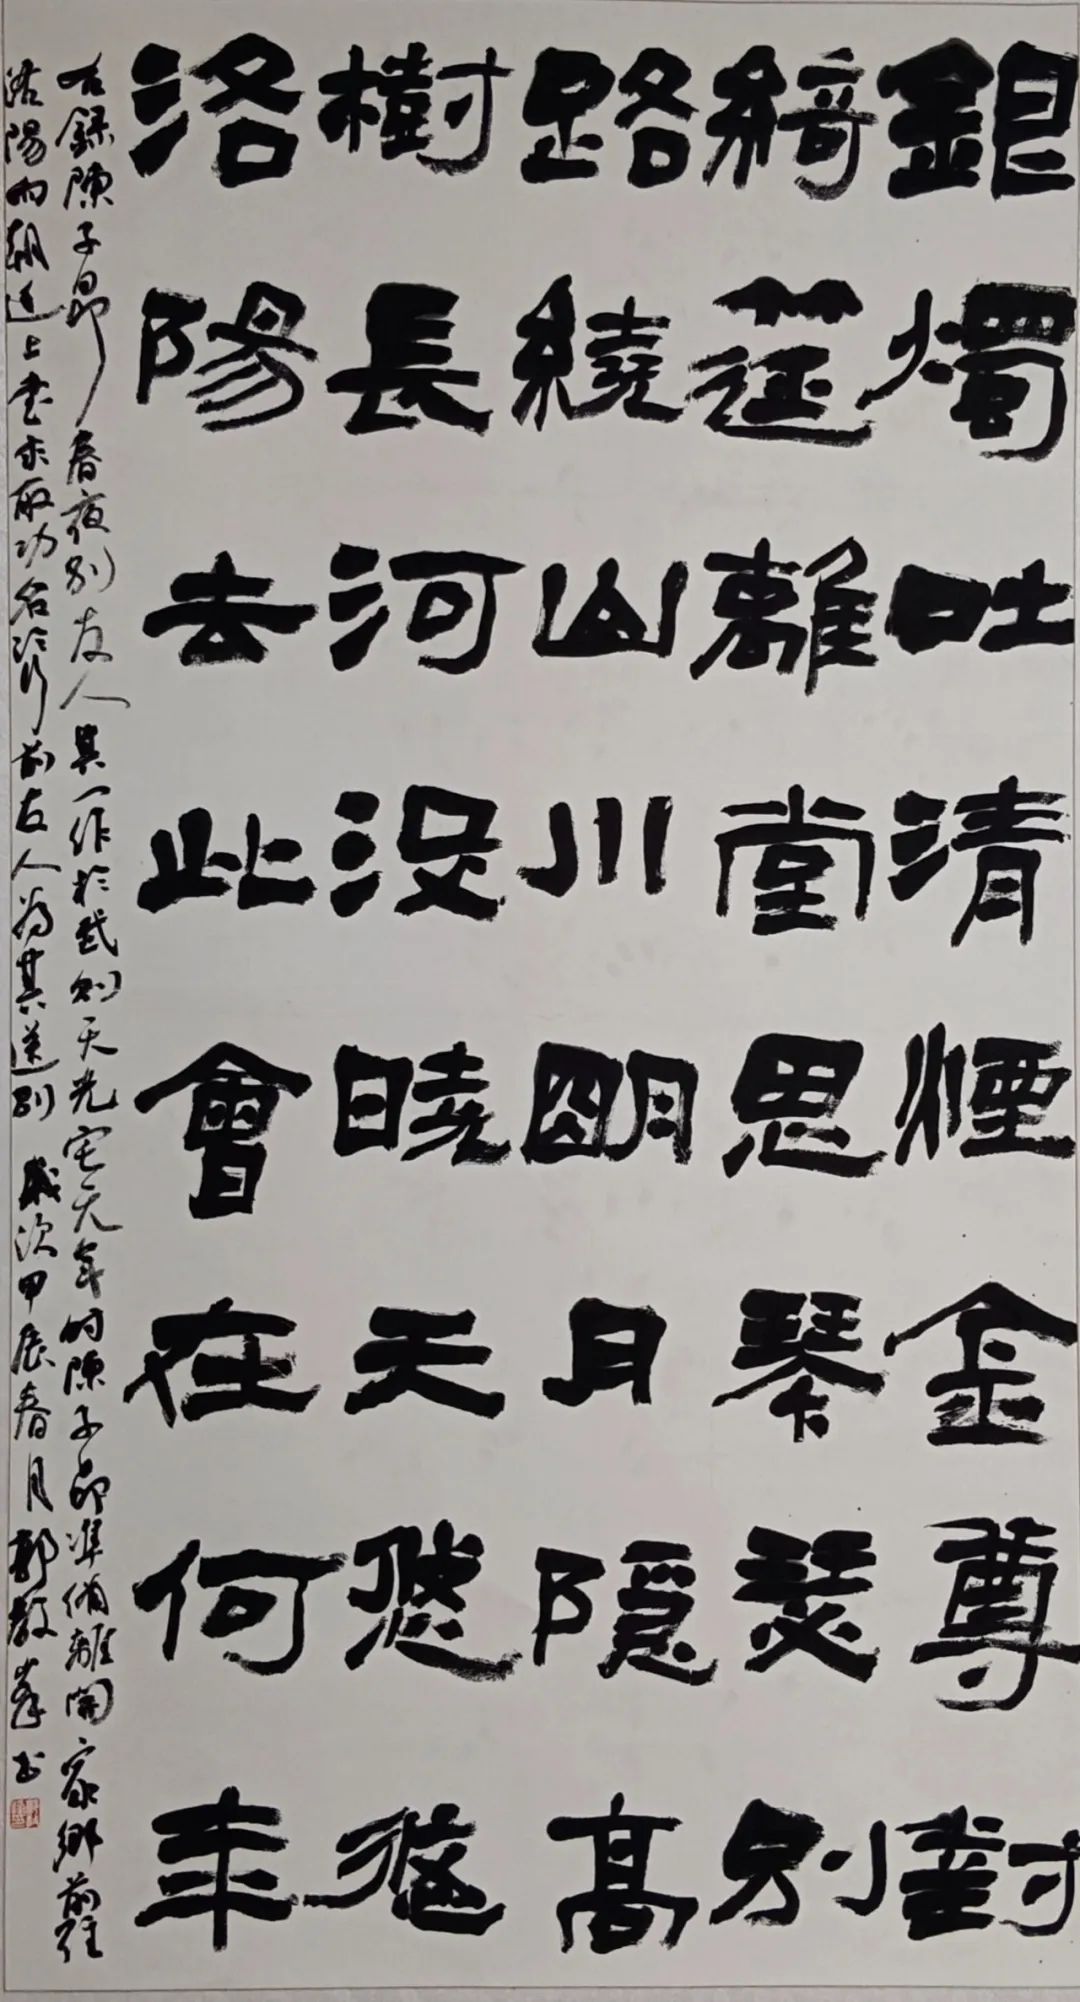 銀燭吐清煙金尊對
綺筵離堂思琴瑟別
路繞山川明月隱高
樹長河没曉天悠悠
洛陽去此會在何年
右錄陳子昂春夜別友人其一作於武則天光宅元年時陳子昂準備離開家鄉前往
洛陽向朝廷上書求取功名臨行前友人為其送別 歲次甲辰春月郭教峯書